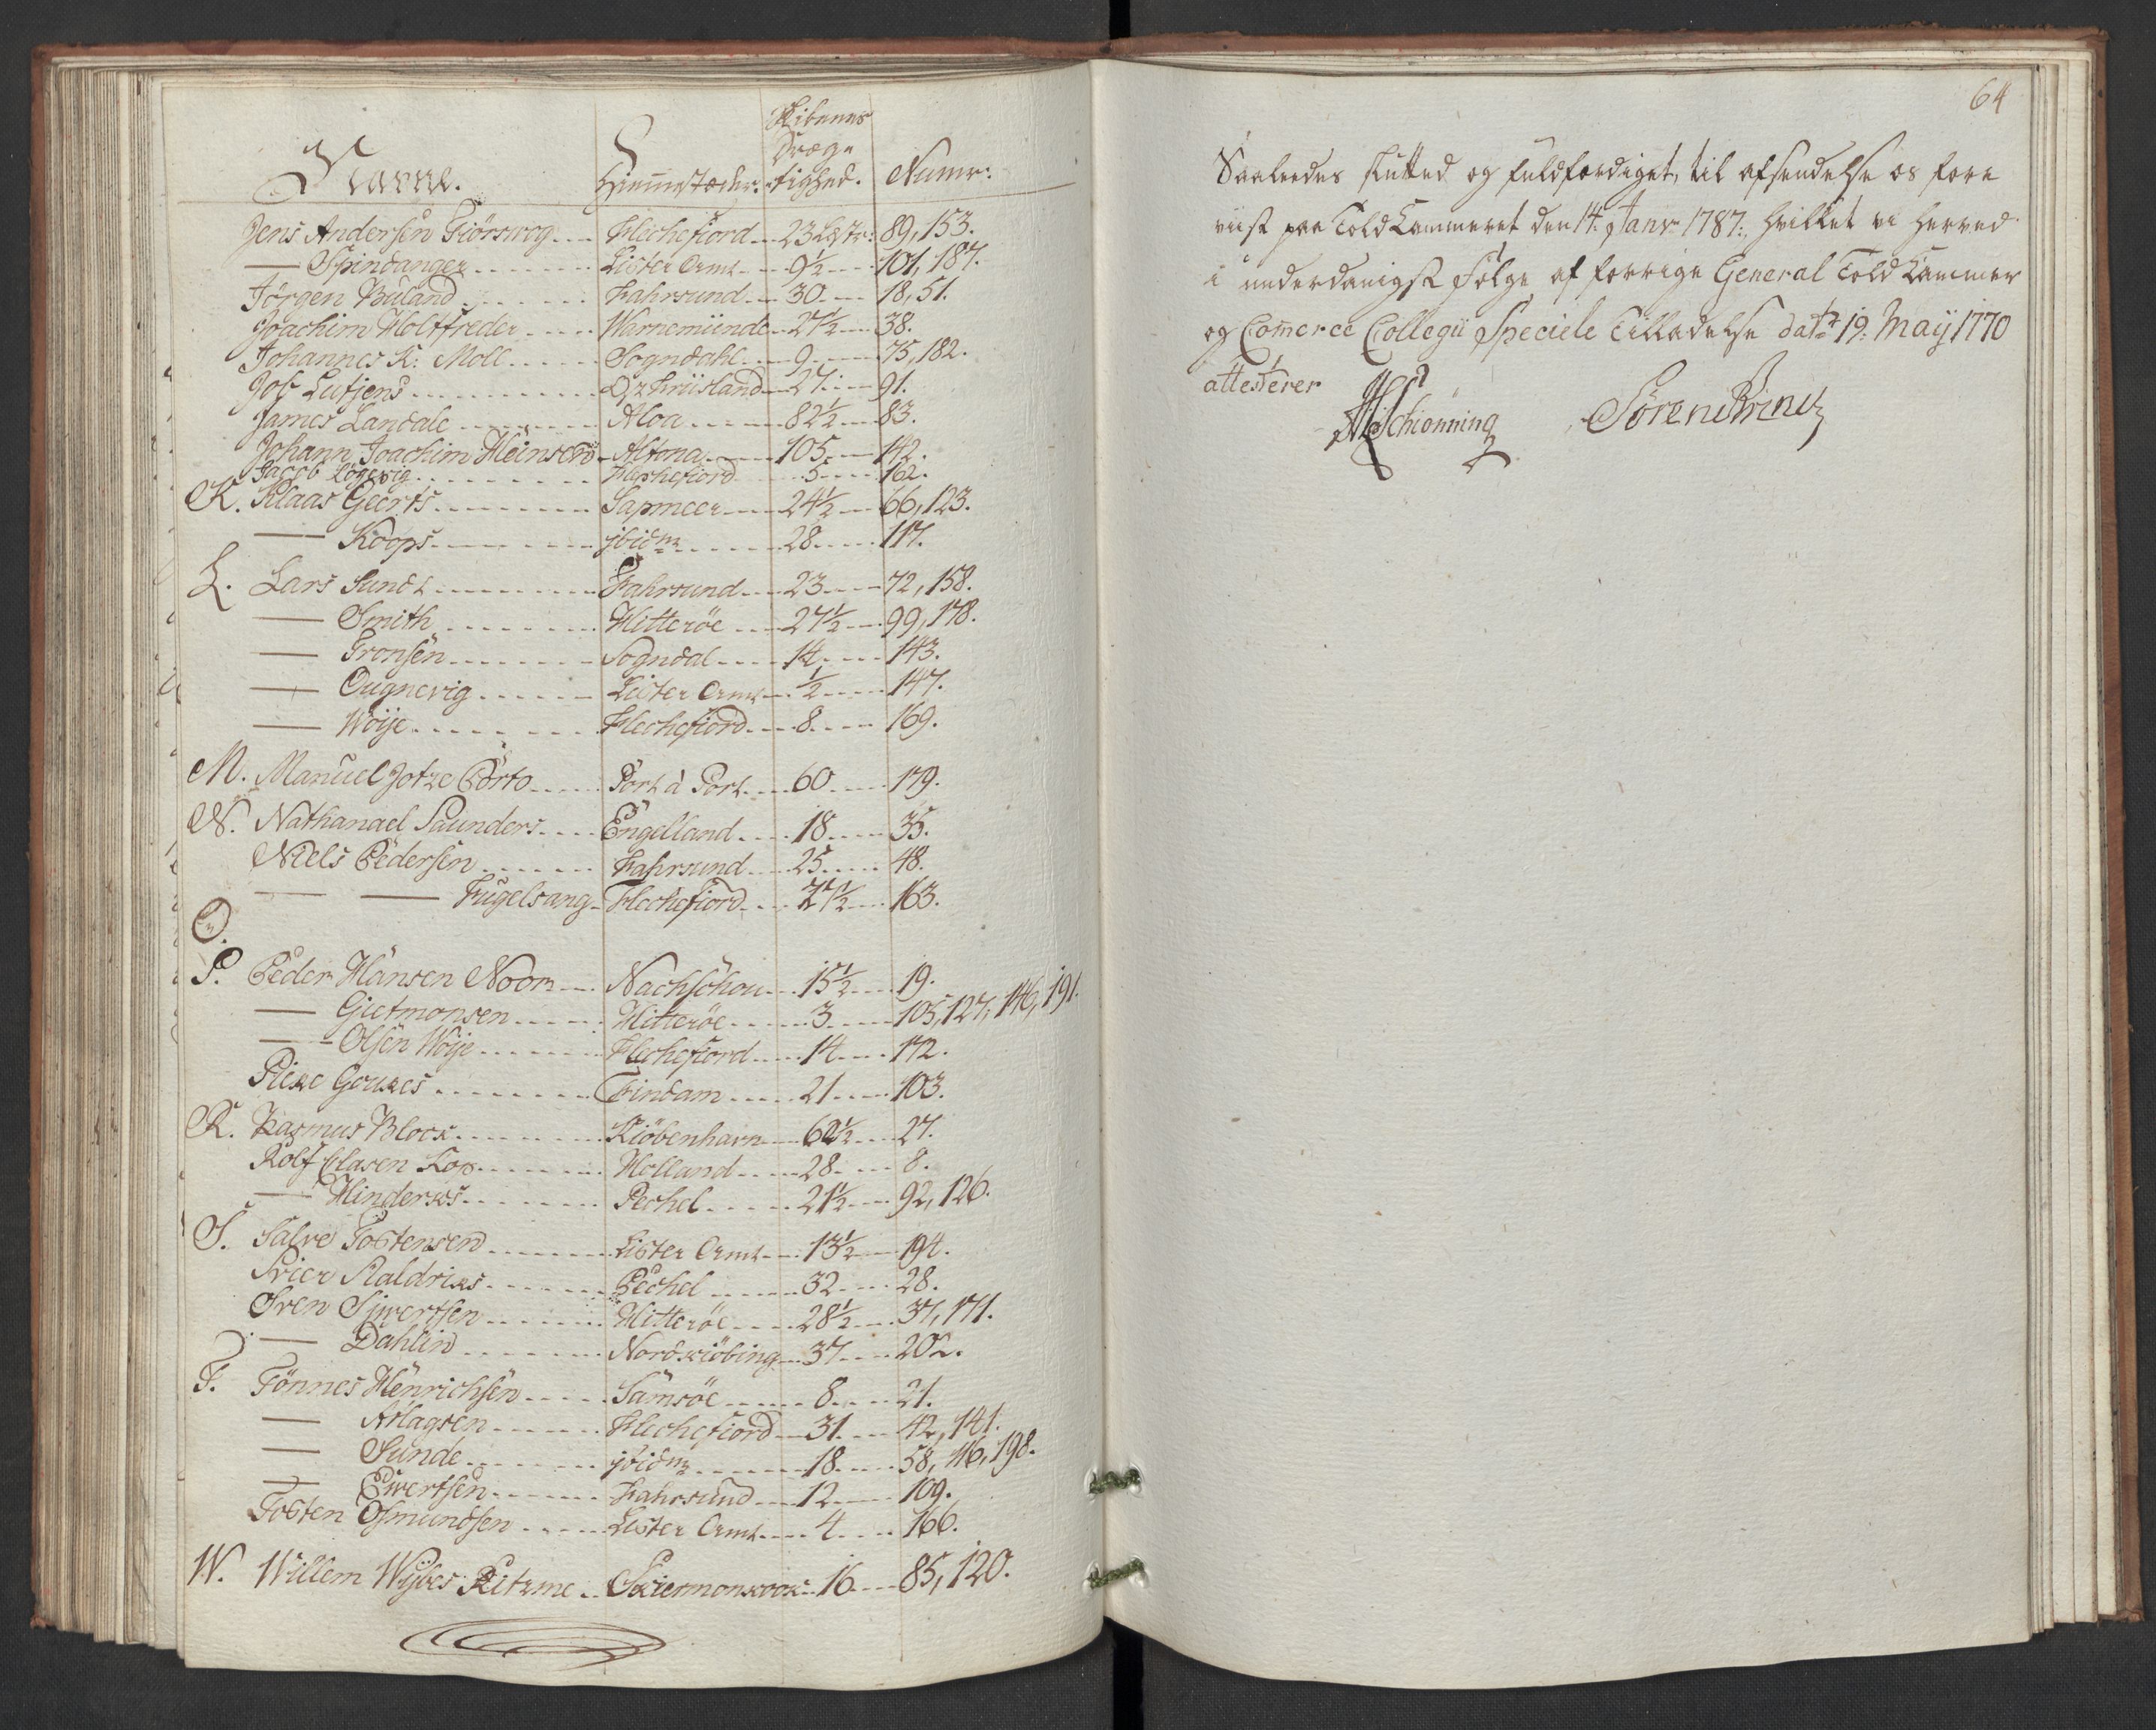 Navne. Hiemstæder. Skibenes Dræg-tighed. Numr:
Jens Andersen Giörswog Flechefiord 23 Læstr: 89, 153.
— Spindanger Lister Amt 9½ 101, 187.
Jörgen Buland Fahrsund 30 18, 51.
Joachim Holtfreder Warnemünde 27½ 38.
Johannes K: Moll Sogndahl 9 75, 182.
Joh Lutjens Ostfriisland 27 91.
James Landale Aloa 82½ 83.
Johann Joachim Heinsen Altona 105 142.
Jacob Løgevig Flechefiord 5 162.
K. Klaas Geerts Sapmeer 24½ 66, 123.
— Koops ibidm 28 117.
L. Lars Sundt Fahrsund 23 72, 158.
— Smith Hitteröe 27½ 99, 178.
— Tronsen Sogndal 14 143.
— Ougnevig Lister Amt ½ 147.
— Woije Flechefiord 8 169.
M. Manuel Jotze Porto Port à Port 60 179.
N. Nathanael Saunders Engelland 18 35.
Niels Pedersen Fahrsund 25 48.
— — Fugelsang Flechefiord 27½ 163.
O.
P. Peder Hansen Noor Nachschou 15½ 19.
— Gietmonsen Hitteröe 3 105, 127, 146, 191.
— Olsen Woije Flechefiord 14 172.
Piere Goukes Tindam 21 103.
R. Rasmus Block Kiöbenhavn 62½ 27.
Rolf Clasen Kop Holland 28 8.
— Hinderks Pechel 21½ 92, 126.
S. Salve Tostensen Lister Amt 13½ 194.
Svier Aaldriks Pechel 32 28.
Sven Sijvertsen Hitteröe 28½ 37, 171.
— Dahlin Nordkiöbing 37 202.
T. Tönnes Henrichsen Samsöe 8 21.
— Aslagsen Flechefiord 31 42, 141.
— Sunde ibidm 18 58, 116, 198.
— Evertsen Fahrsund 12 109.
Tosten Osmundsen Lister Amt 4 166.
W. Willem Wijbes Ritzme Skiermonkook 16 85, 120.
64
Saaleedes slutted og fuldfærdiget, til afsendelse os fore
viist paa ToldKammeret den 14. Janv 1787:, hvilket vi herved
i underdanigst Følge af forrige General Told Kammer
og Comerce Collegii Speciele Tilladelse dat: 19. Maij 1770
attesterer
Schiönning Sören Printz